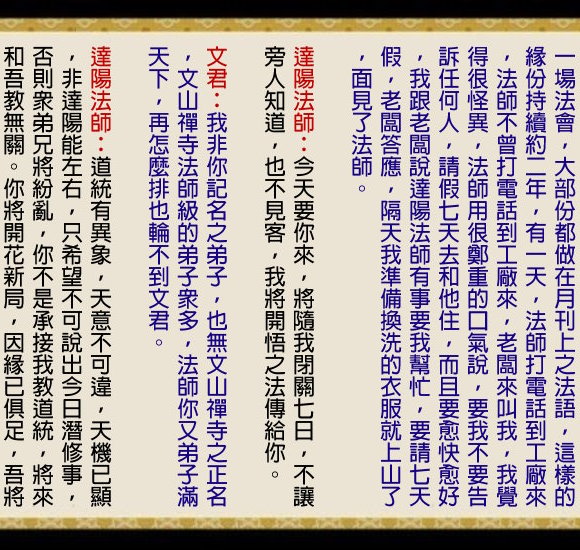 一場法會，大部份都做在月刊上之法語，這樣的
緣份持續約二年，有一天，法師打電話到工廠來
，法師不曾打電話到工廠來，老闆來叫我，我覺
得很怪異，法師用很鄭重的口氣說，要我不要告
訴任何人，請假七天去和他住，而且要愈快愈好
，我跟老闆說達陽法師有事要我幫忙，要請七天
假，老闆答應，隔天我準備換洗的衣服就上山了
，面見了法師。
達陽法師：今天要你來，將隨我閉關七日，不讓
旁人知道，也不見客，我將開悟之法傳給你。
文君：我非你記名之弟子，也無文山禪寺之正名
，文山禪寺法師級的弟子衆多，法師你又弟子滿
天下，再怎麼排也輪不到文君。
達陽法師：道統有異象，天意不可違，天機已顯
，非達陽能左右，只希望不可說出今日潛修事，
否則衆弟兄將紛亂，你不是承接我教道統，將來
和吾教無關。你將開花新局，因緣已俱足，吾將